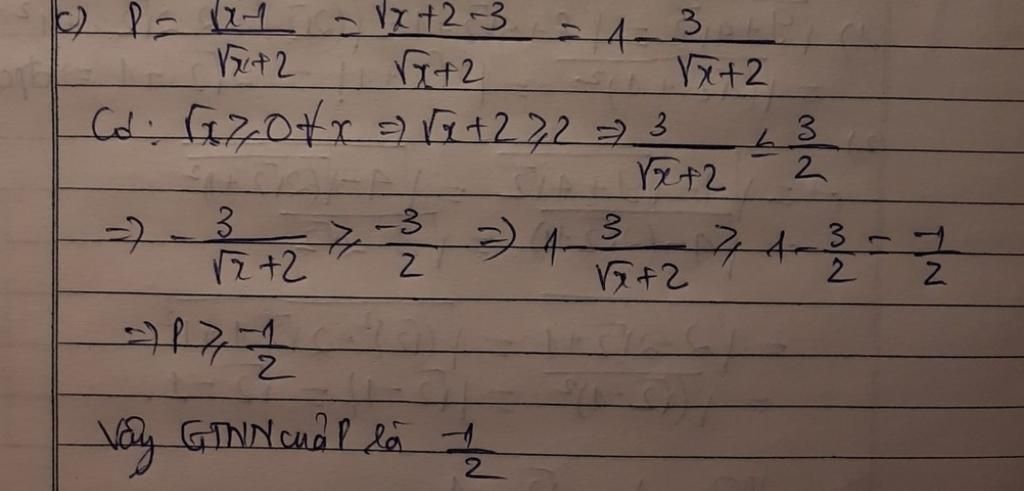 c) P = √x-1/√x+2 = √x+2-3/√x+2 = 1 - 3/√x+2
Có: √x ≥ 0 ∀x ⇒ √x+2 ≥ 2 ⇒ 3/√x+2 ≤ 3/2
⇒ - 3/√x+2 ≥ -3/2 ⇒ 1 - 3/√x+2 ≥ 1 - 3/2 = -1/2
⇒ P ≥ -1/2
Vậy GTNN của P là -1/2